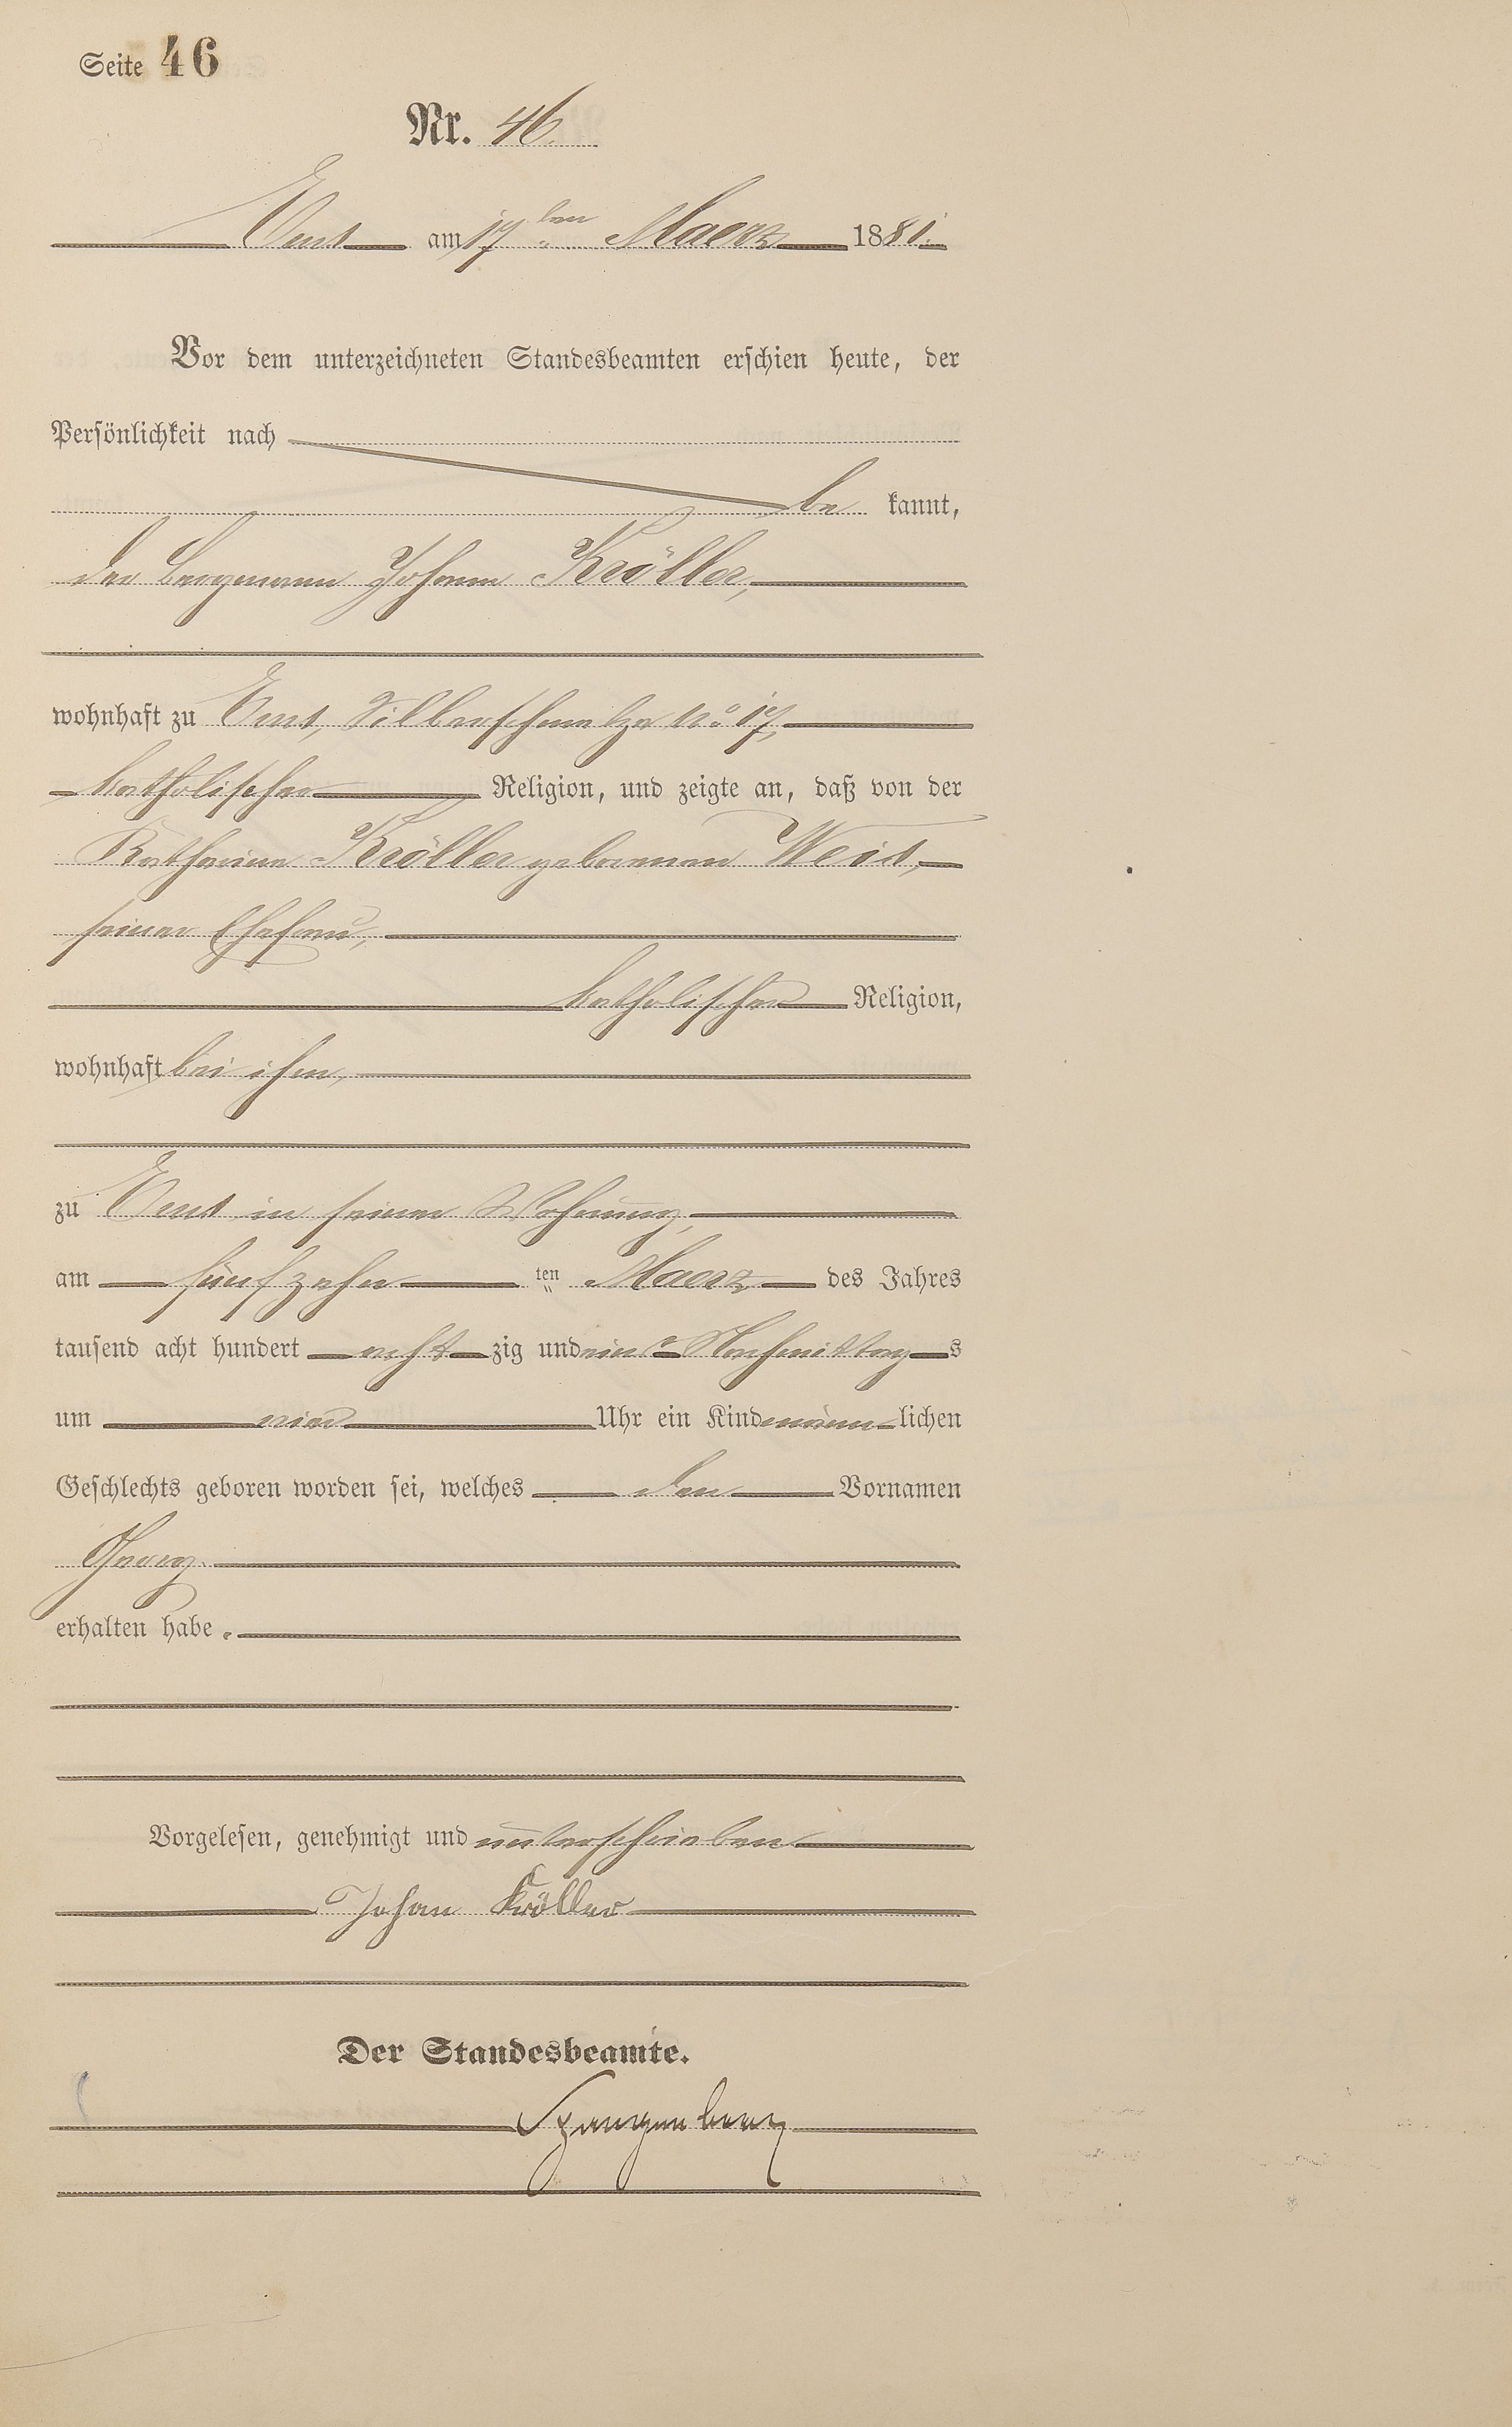 Seite 46
Nr. 46.
Ems am 17ten Maerz 1881.
Vor dem unterzeichneten Standesbeamten erschien heute, der
Persönlichkeit nach
be kannt,
der Bergmann Johann Kröller,
wohnhaft zu Ems, Silberschmelze No 17,
katholischer Religion, und zeigte an, daß von der
Katharina Kröller geborenen Weis,
seiner Ehefrau,
katholischer Religion,
wohnhaft bei ihm,
zu Ems in seiner Wohnung,
am fünfzehn ten Maerz des Jahres
tausend acht hundert acht zig und eins Nachmittag s
um vier Uhr ein Kind männ lichen
Geschlechts geboren worden sei, welches den Vornamen
Georg
erhalten habe.
Vorgelesen, genehmigt und unterschrieben
Johan Kröller
Der Standesbeamte.
Spangenberg